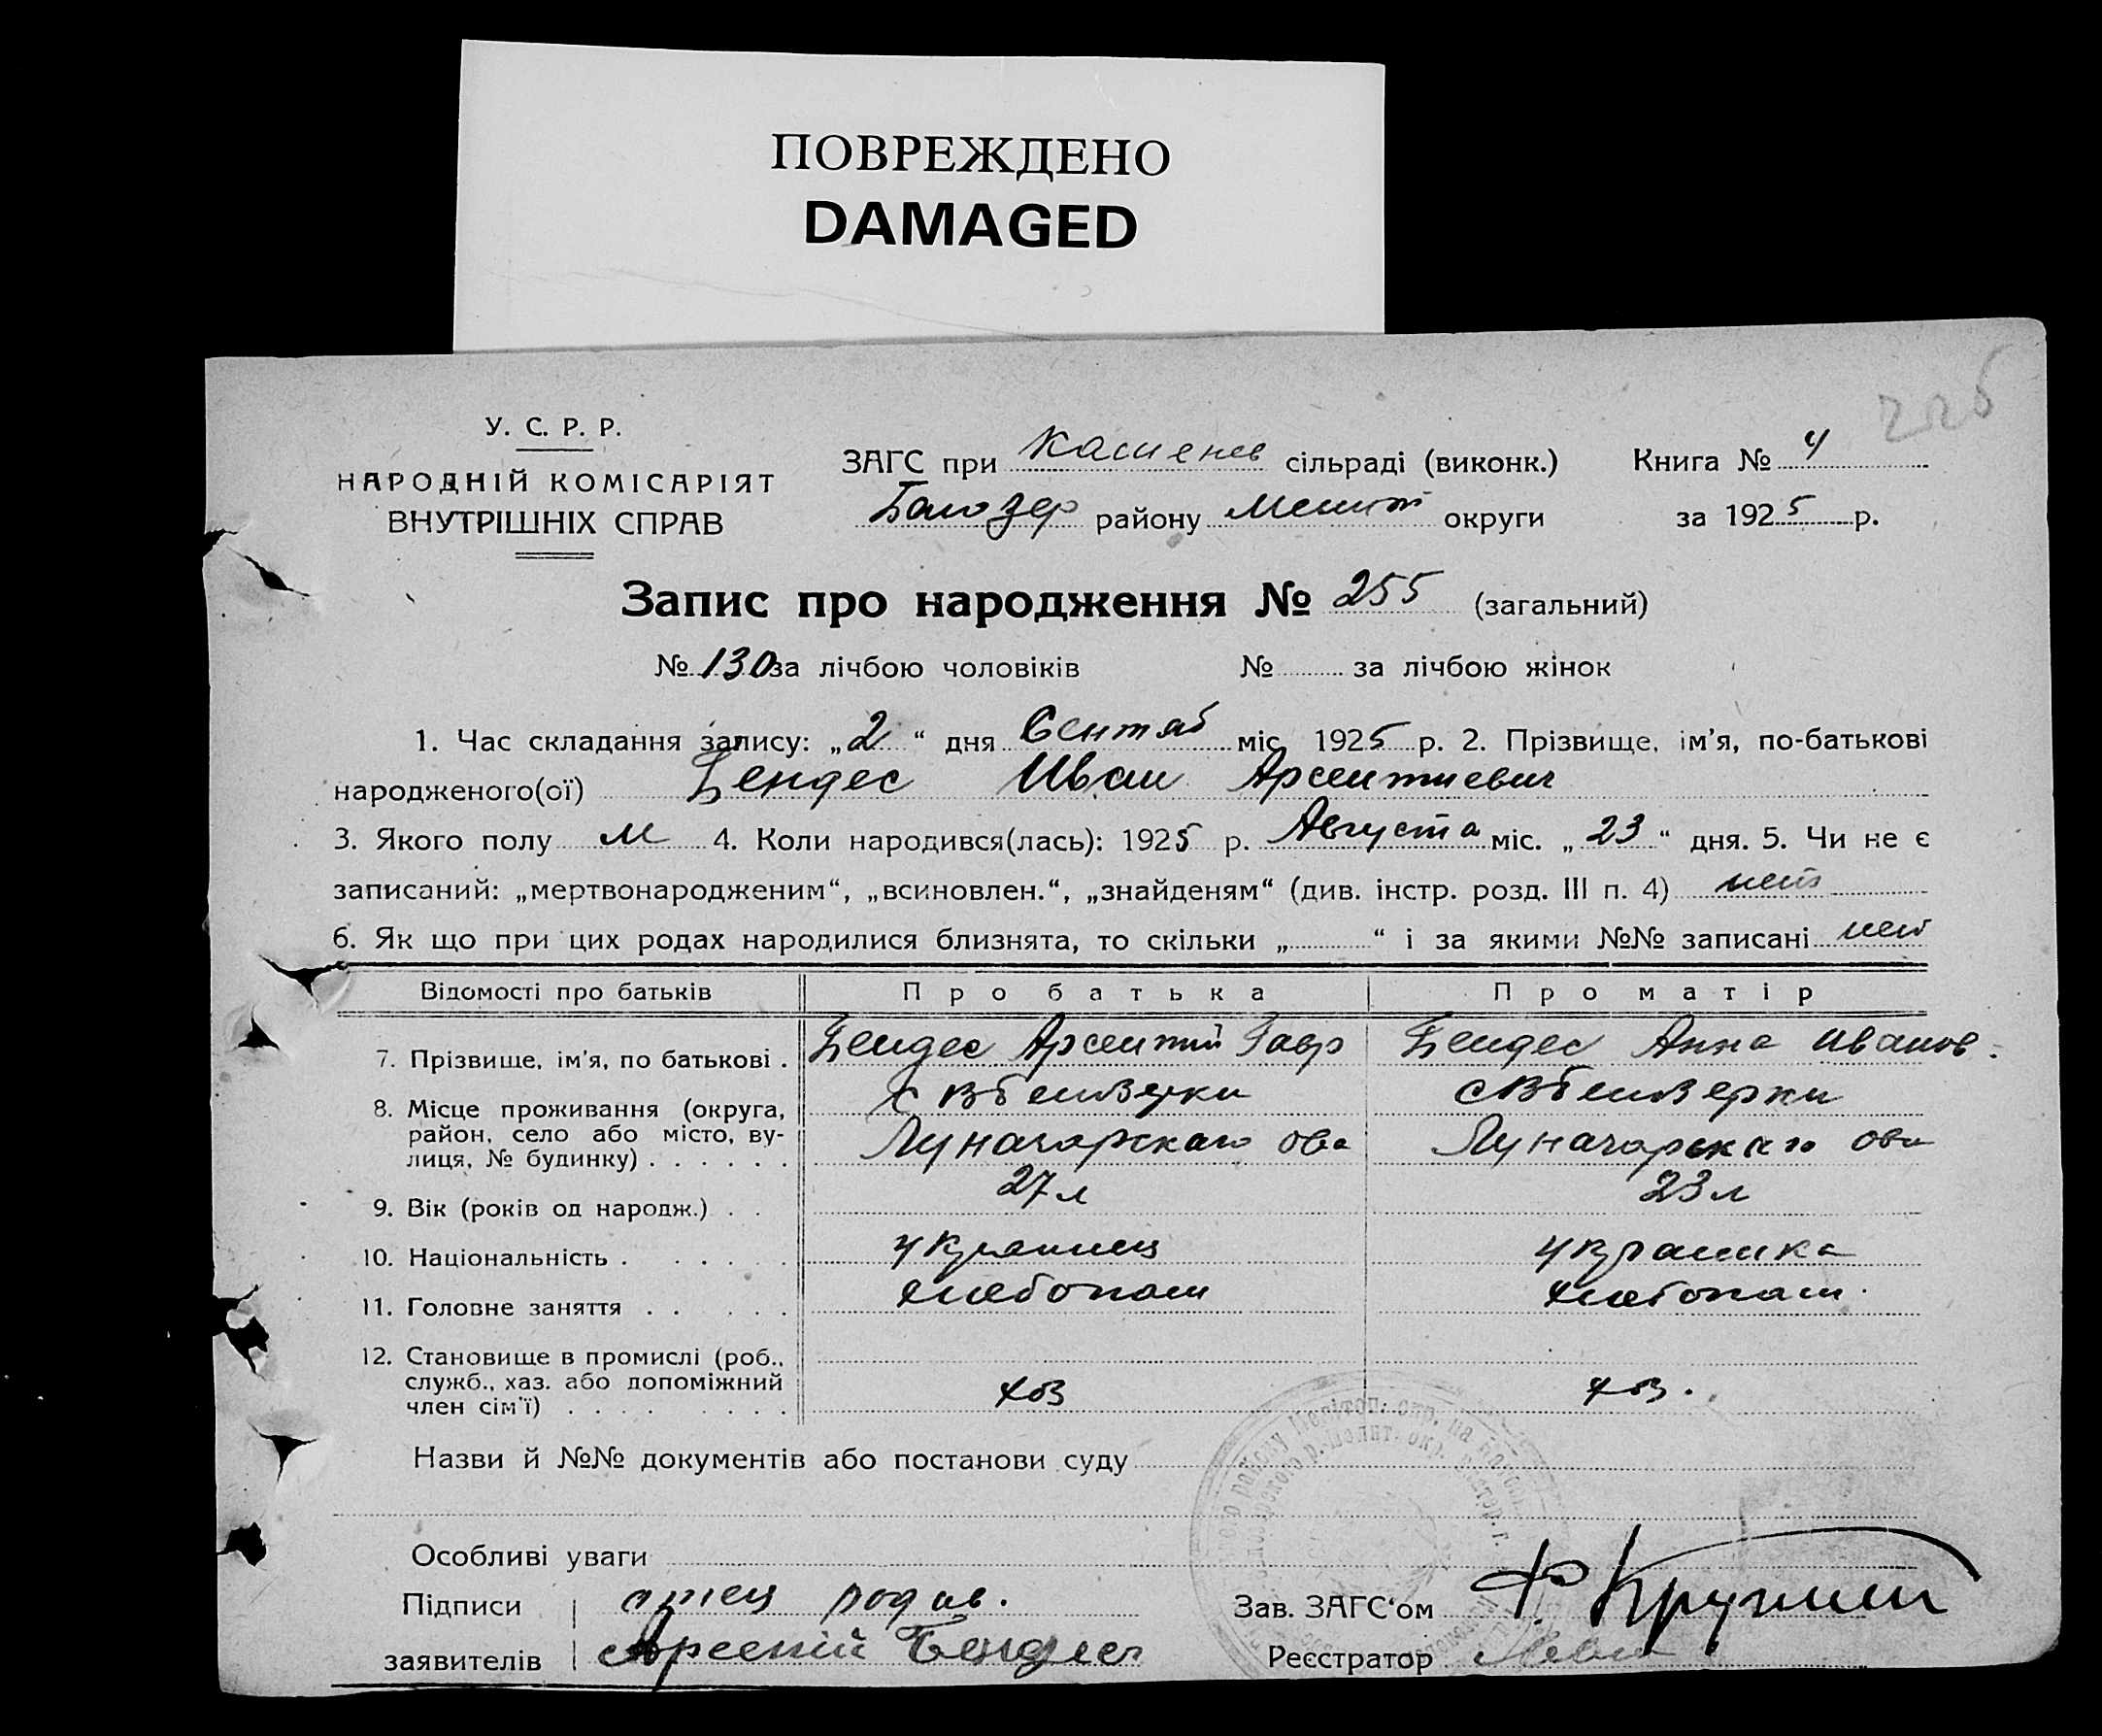 ПОВРЕЖДЕНО
DAMAGED
225
У. С. Р. Р.
НАРОДНІЙ КОМІСАРІЯТ
ВНУТРІШНІХ СПРАВ
ЗАГС при Каменев сільраді (виконк.)
Белозер району Мелит округи
Книга № 4
за 1925 р.
Запис про народження № 255 (загальний)
№ 130 за лічбою чоловіків № за лічбою жінок
1. Час складання запису: „2“ дня Сентяб міс. 1925 р. 2. Прізвище, ім'я, по-батькові
народженого(ої) Бендес Иван Арсентиевич
3. Якого полу м 4. Коли народився(лась): 1925 р. Августа міс. „23“ дня. 5. Чи не є
записаний: „мертвонародженим“, „всиновлен.“, „знайденям“ (див. інстр. розд. III п. 4) нет
6. Як що при цих родах народилися близнята, то скільки „ “ і за якими №№ записані нет
Відомості про батьків Про батька Про матір
7. Прізвище, ім'я, по батькові . Бендес Арсентий Гавр Бендес Анна Иванов.
8. Місце проживання (округа,
район, село або місто, вулиця, № будинку) . . . . . . Луначарскаго ова Луначарскаго ова
9. Вік (років од народж.) . . 27 л 23 л
10. Національність . . . . . . украинец украинка
11. Головне заняття . . . . . хлебопаш хлебопаш.
12. Становище в промислі (роб.,
служб., хаз. або допоміжний
член сім'ї) . . . . . . . . хоз хоз.
Назви й №№ документів або постанови суду
Особливі уваги
Підписи отец родив.
заявителів Арсений Бендес
Зав. ЗАГС'ом
Реєстратор